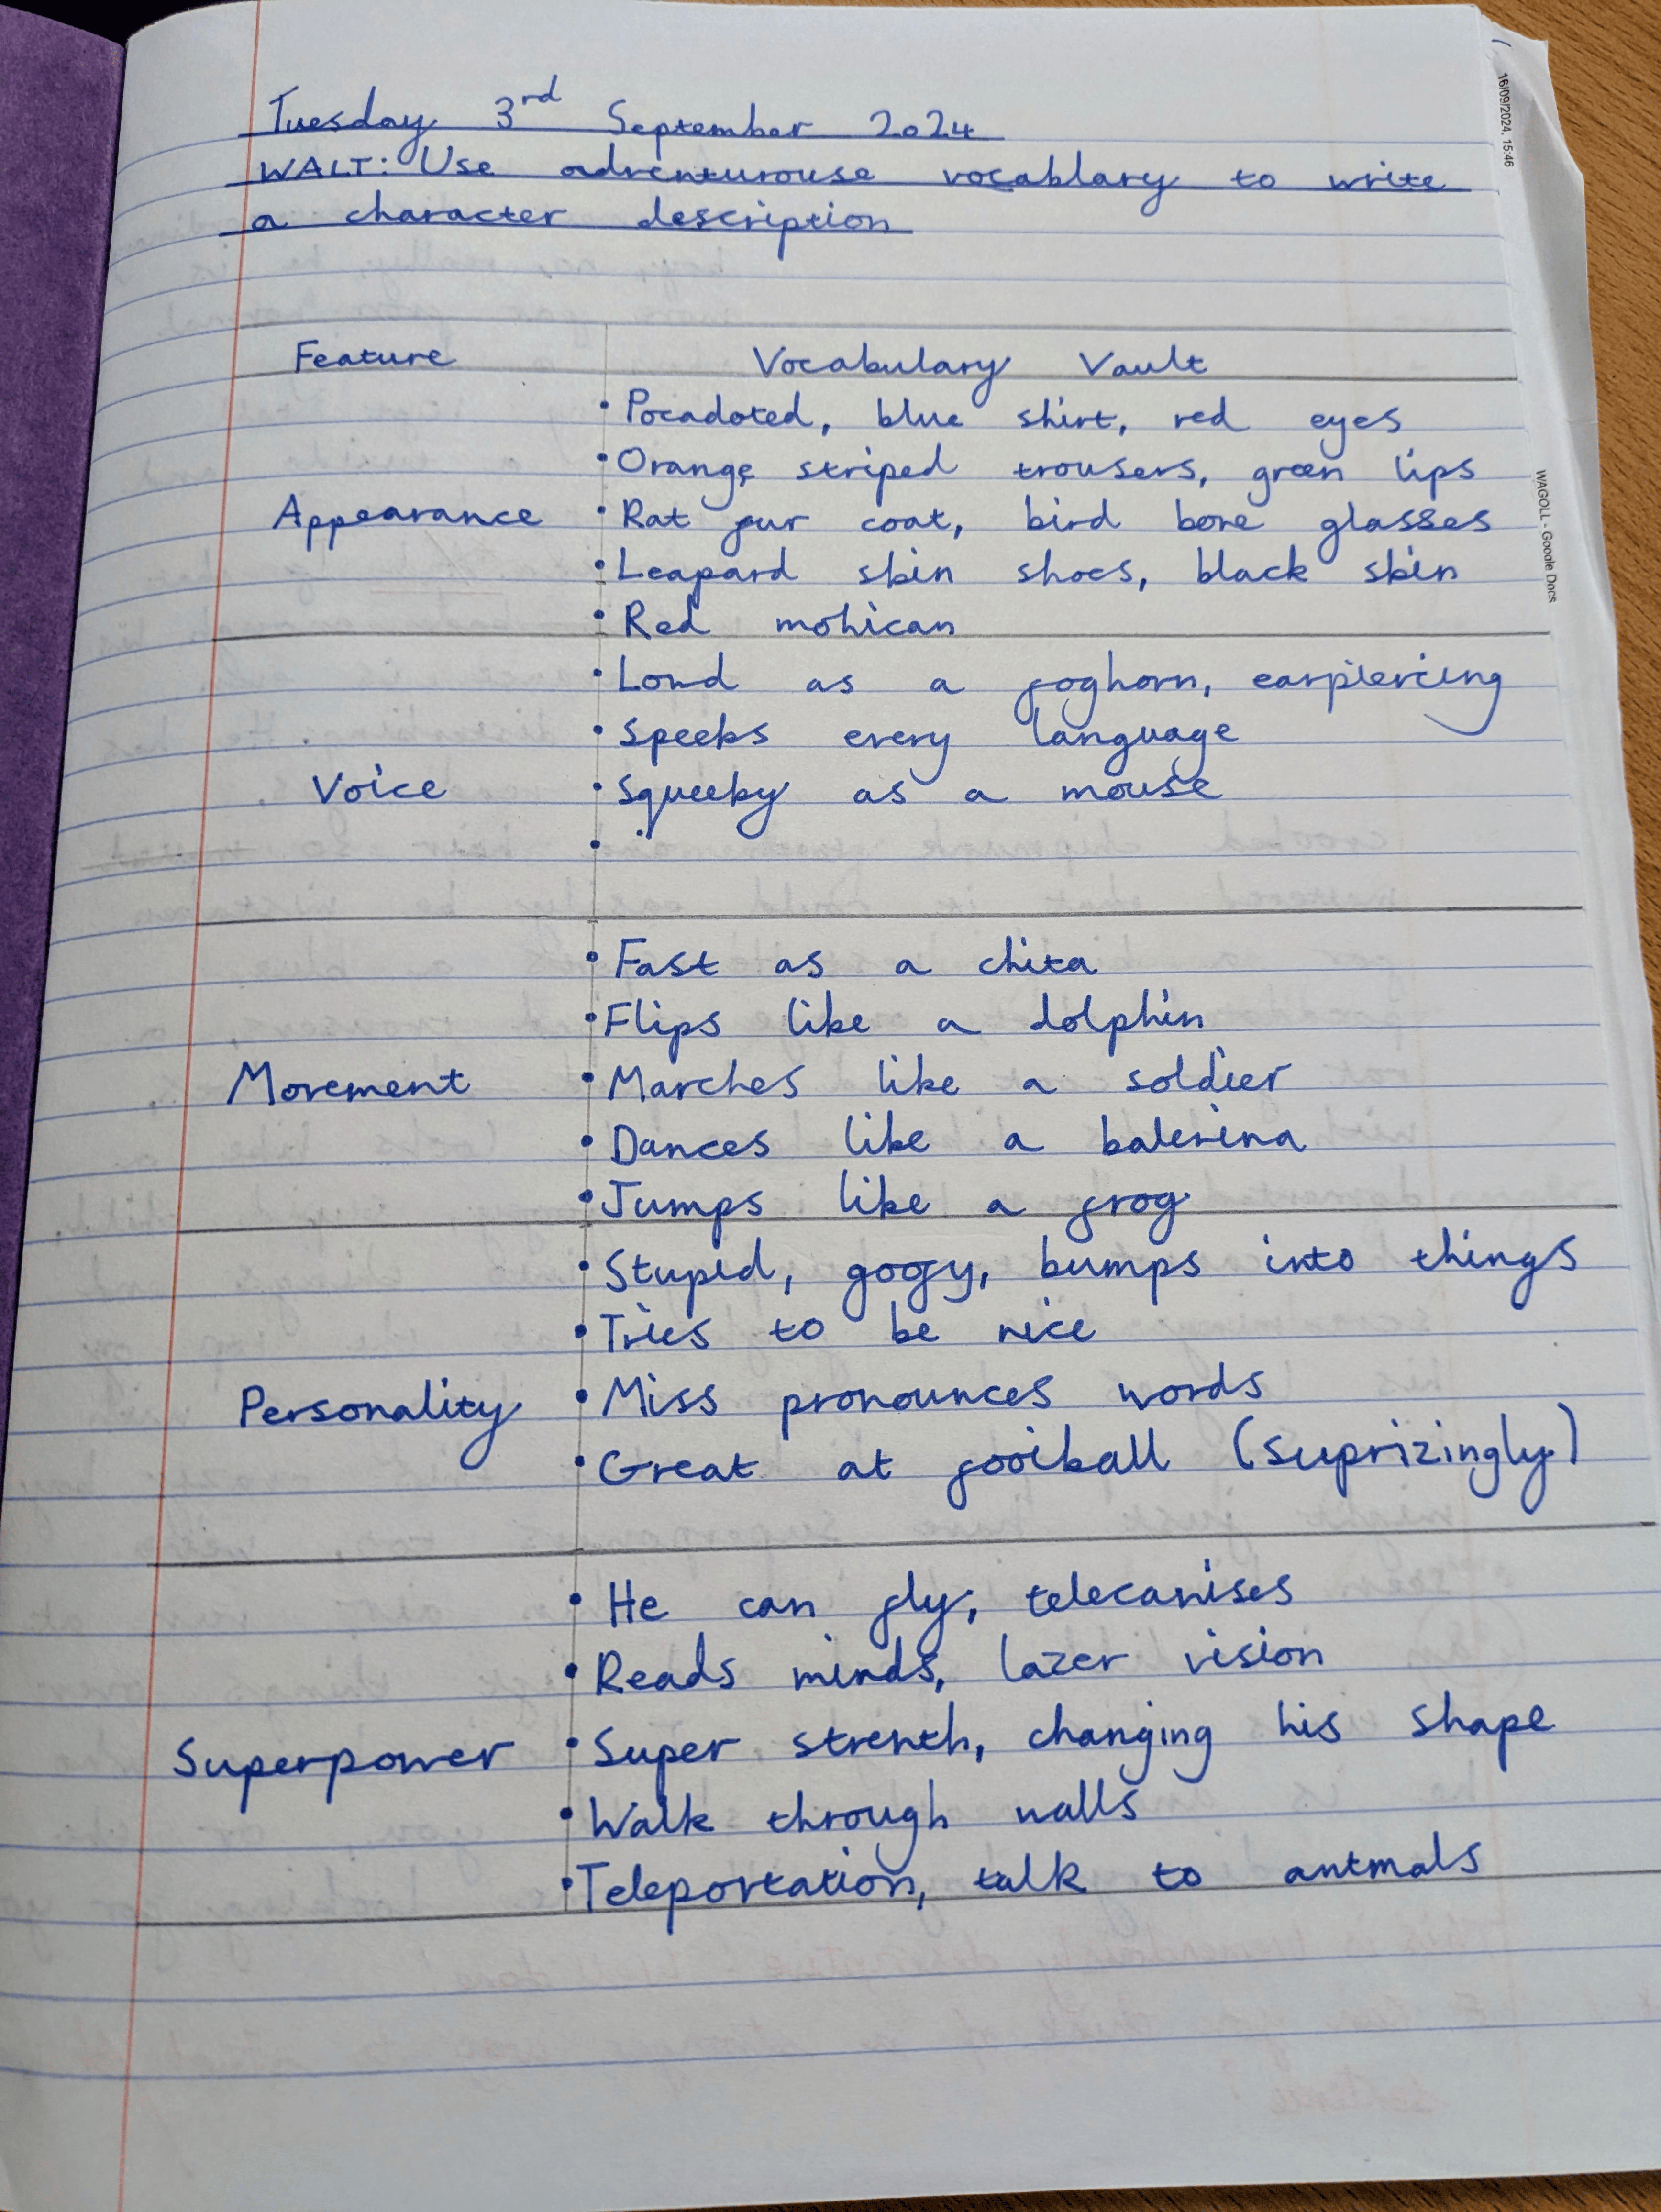 Tuesday 3rd September 2024
WALT: Use adventurouse vocablary to write
a character description
Feature Vocabulary Vault
• Pocadoted, blue shirt, red eyes
• Orange striped trousers, green lips
Appearance • Rat fur coat, bird bone glasses
• Leapard skin shoes, black skin
• Red mohican
• Loud as a foghorn, earpiercing
• Speeks every language
Voice • Squeeky as a mouse
•
• Fast as a chita
• Flips like a dolphin
Movement • Marches like a soldier
• Dances like a balerina
• Jumps like a frog
• Stupid, goofy, bumps into things
• Tries to be nice
Personality • Miss pronounces words
• Great at football (suprizingly)
• He can fly, telecanises
• Reads minds, lazer vision
Superpower • Super strenth, changing his shape
• Walk through walls
• Teleportation, talk to antmals
16/09/2024, 15:46
WAGOLL - Google Docs